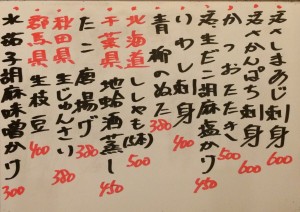 活〆しまあじ刺身 600
活〆かんぱち刺身 600
かつおたたき 500
活生だこ胡麻塩かけ 450
いわし刺身 400
青柳のぬた 380
北海道 ししゃも(5本) 500
千葉県 地蛤酒蒸し 450
たこ唐揚げ 380
秋田県 生じゅんさい 380
群馬県 生枝豆 400
水茄子胡麻味噌かけ 300